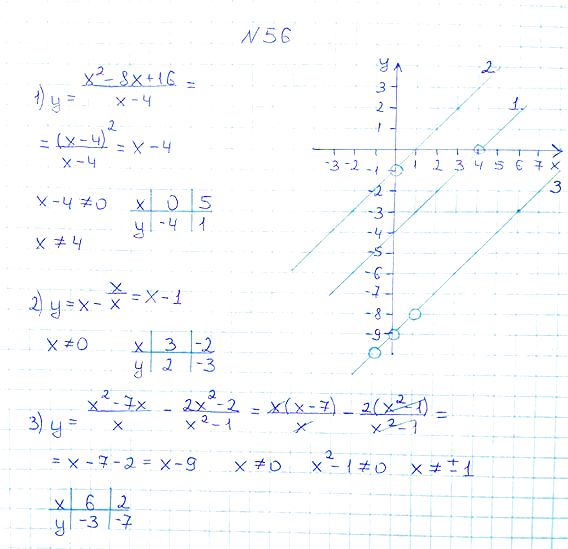 N56
1) y = (x² - 8x + 16)/(x - 4) =
= (x - 4)²/(x - 4) = x - 4
x - 4 ≠ 0
x ≠ 4
x | 0 | 5
y | -4 | 1
2) y = x - x/x = x - 1
x ≠ 0
x | 3 | -2
y | 2 | -3
3) y = (x² - 7x)/x - (2x² - 2)/(x² - 1) = x(x - 7)/x - 2(x² - 1)/(x² - 1) =
= x - 7 - 2 = x - 9 x ≠ 0 x² - 1 ≠ 0 x ≠ ±1
x | 6 | 2
y | -3 | -7
y
2
3
2
1
1
-3 -2 1 2 3 4 5 6 7 x
-1
3
-2
-3
-4
-5
-6
-7
-8
-9